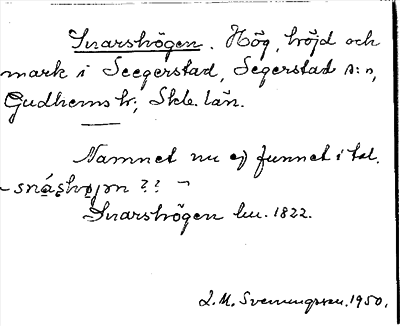 Snarshögen. Hög, höjd och
mark i Seegerstad, Segerstad s:n,
Gudhems hr; Skb. län.
Namnet nu ej funnet i tal.
Snarshögen hu. 1822.
L. M. Svenungsson. 1950.